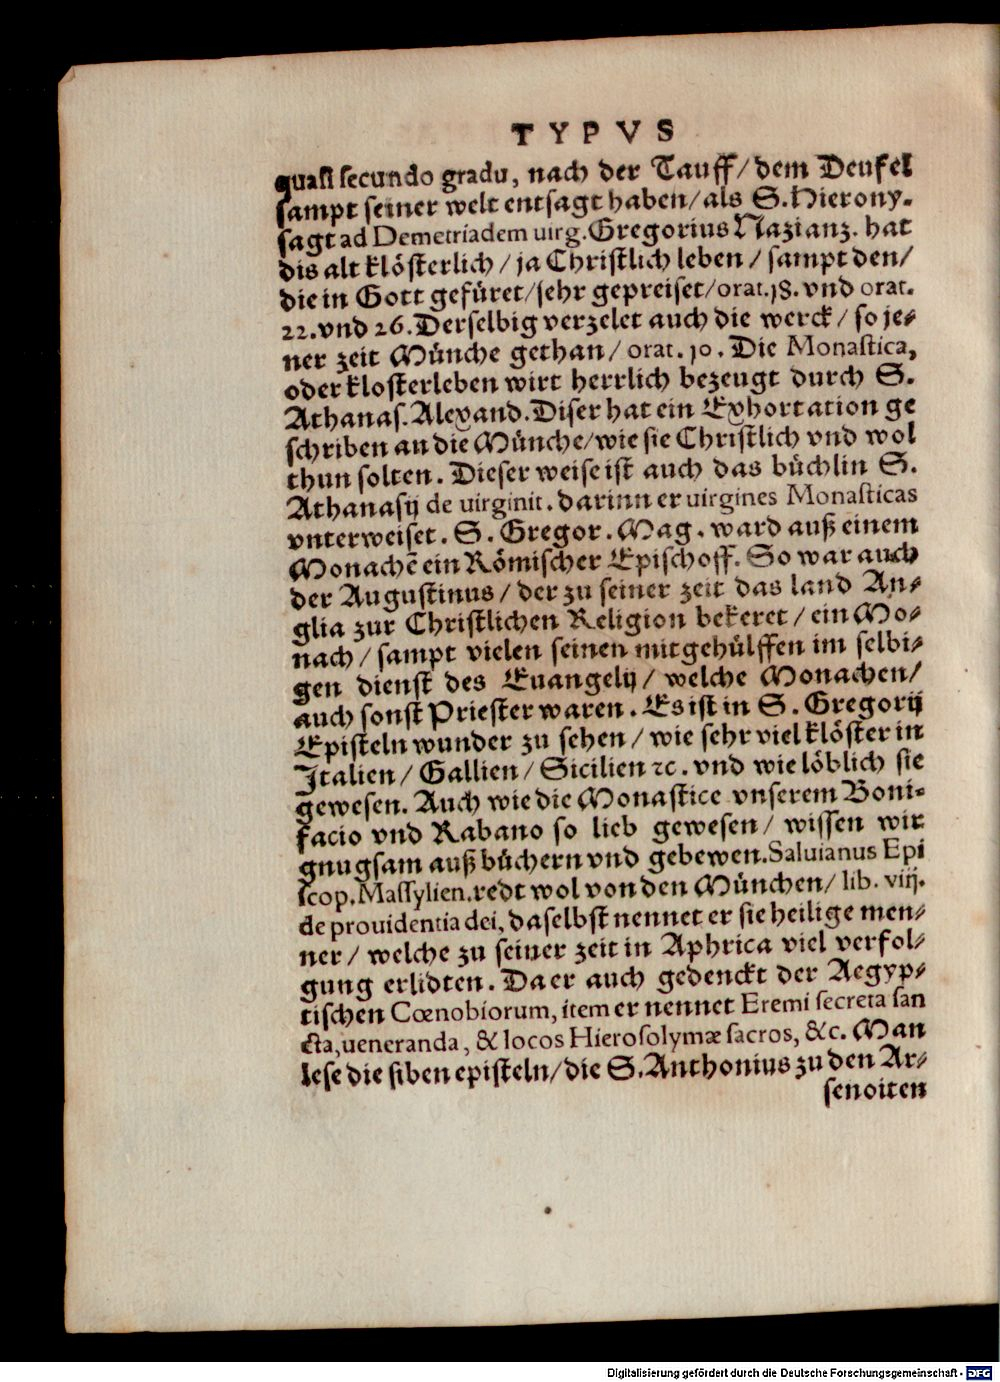 TYPVS
quasi secundo gradu, nach der Tauff/ dem Deufel
sampt seiner welt entsagt haben/ als S. Hierony.
sagt ad Demetriadem uirg. Gregorius Nazianz. hat
dis alt klösterlich/ ja Christlich leben/ sampt den/
die in Gott gefüret/ sehr gepreiset/ orat. 18. vnd orat.
22. vnd 26. Derselbig verzelet auch die werck/ so je-
ner zeit Münche gethan/ orat. 10. Die Monastica,
oder klosterleben wirt herrlich bezeugt durch S.
Athanas. Alexand. Diser hat ein Exhortation ge
schriben an die Münche/ wie sie Christlich vnd wol
thun solten. Dieser weise ist auch das büchlin S.
Athanasij de uirginit. darinn er uirgines Monasticas
vnterweiset. S. Gregor. Mag. ward auß einem
Monachē ein Römischer Epischoff. So war auch
der Augustinus/ der zu seiner zeit das land An-
glia zur Christlichen Religion bekeret/ ein Mo-
nach/ sampt vielen seinen mitgehülffen im selbi-
gen dienst des Euangelij/ welche Monachen/
auch sonst Priester waren. Es ist in S. Gregorij
Episteln wunder zu sehen/ wie sehr viel klöster in
Italien/ Gallien/ Sicilien ꝛc. vnd wie löblich sie
gewesen. Auch wie die Monastice vnserem Boni-
facio vnd Rabano so lieb gewesen/ wissen wir
gnugsam auß büchern vnd gebewen. Saluianus Epi
scop. Massylien. redt wol von den München/ lib. viij.
de prouidentia dei, daselbst nennet er sie heilige men-
ner/ welche zu seiner zeit in Aphrica viel verfol-
gung erlidten. Da er auch gedenckt der Aegyp-
tischen Cœnobiorum, item er nennet Eremi secreta san
cta, ueneranda, & locos Hierosolymæ sacros, &c. Man
lese die siben episteln/ die S. Anthonius zu den Ar-
senoiten
Digitalisierung gefördert durch die Deutsche Forschungsgemeinschaft - DFG